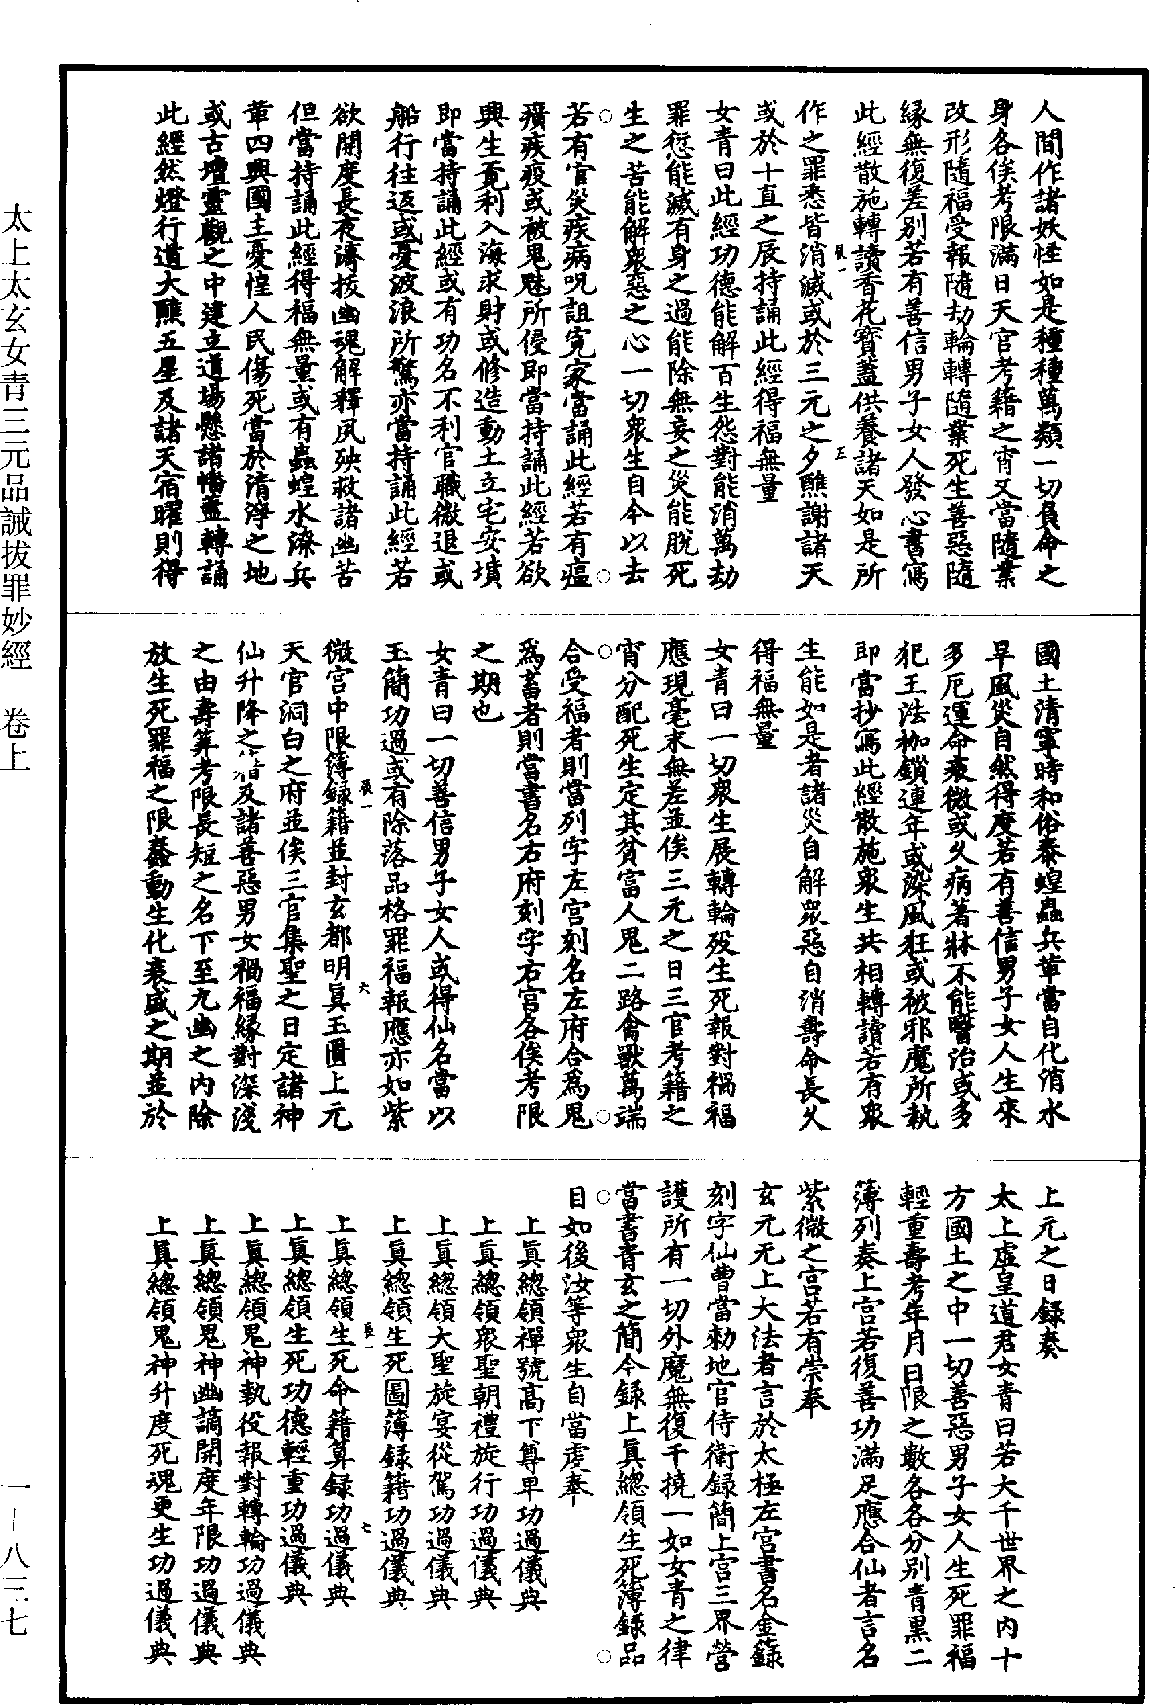 人間作諸妖怪如是種種萬類一切負命之
身各俟考限滿日天官考籍之宵又當隨業
改形隨福受報隨劫輪轉隨業死生善惡隨
緣無復差別若有善信男子女人發心書寫
此經散施轉讀香花寶蓋供養諸天如是所
作之罪悉皆消滅或於三元之夕醮謝諸天
或於十直之辰持誦此經得福無量
女青曰此經功德能解百生怨對能消萬劫
罪愆能滅有身之過能除無妄之災能脫死
生之苦能解眾惡之心一切眾生自今以去
若有官災疾病呪詛冤家當誦此經若有瘟
㾮疾疫或被鬼魅所侵即當持誦此經若欲
興生覓利入海求財或修造動土立宅安墳
即當持誦此經或有功名不利官職微退或
船行往返或憂波浪所驚亦當持誦此經若
欲開度長夜濟拔幽魂解釋夙殃救諸幽苦
但當持誦此經得福無量或有蟲蝗水潦兵
革四興國主憂惶人民傷死當於清淨之地
或古壇靈觀之中建立道場懸諸幡蓋轉誦
此經然燈行道大醮五星及諸天宿曜則得
國土清寧時和俗泰蝗蟲兵革當自化消水
旱風災自然得度若有善信男子女人生來
多厄運命衰微或久病著牀不能醫治或多
犯王法枷鎖連年或染風狂或被邪魔所執
即當抄寫此經散施眾生共相轉讀若有眾
生能如是者諸災自解眾惡自消壽命長久
得福無量
女青曰一切眾生展轉輪歿生死報對禍福
應現毫末無差並俟三元之日三官考籍之
宵分配死生定其貧富人鬼二路禽獸萬端
合受福者則當列字左宮刻名左府合為鬼
為畜者則當書名右府刻字右宮各俟考限
之期也
女青曰一切善信男子女人或得仙名當以
玉簡功過或有除落品格罪福報應亦如紫
微宮中限簿錄籍並封玄都明真玉圖上元
天官洞白之府並俟三官集聖之日定諸神
仙升降之籍及諸善惡男女禍福緣對深淺
之由壽筭考限長短之名下至九幽之內除
放生死罪福之限蠢動生化衰盛之期並於
上元之日錄奏
太上虛皇道君女青曰若大千世界之內十
方國土之中一切善惡男子女人生死罪福
輕重壽考年月日限之數各各分別青黑二
簿列奏上宮若復善功滿足應合仙者言名
紫微之宮若有崇奉
玄元无上大法者言於太極左宮書名金籙
刻字仙曹當勑地官侍衛錄簡上宮三界營
護所有一切外魔無復干撓一如女青之律
當書青玄之簡今錄上真總領生死簿錄品
目如後汝等眾生自當虔奉
上真總領禪號高下尊卑功過儀典
上真總領眾聖朝禮旋行功過儀典
上真總領大聖旋宴從駕功過儀典
上真總領生死圖簿錄籍功過儀典
上真總領生死命籍算錄功過儀典
上真總領生死功德輕重功過儀典
上真總領鬼神執役報對轉輪功過儀典
上真總領鬼神幽謫開度年限功過儀典
上真總領鬼神升度死魂更生功過儀典
太上太玄女青三元品誡拔罪妙經　卷上
一—八三七